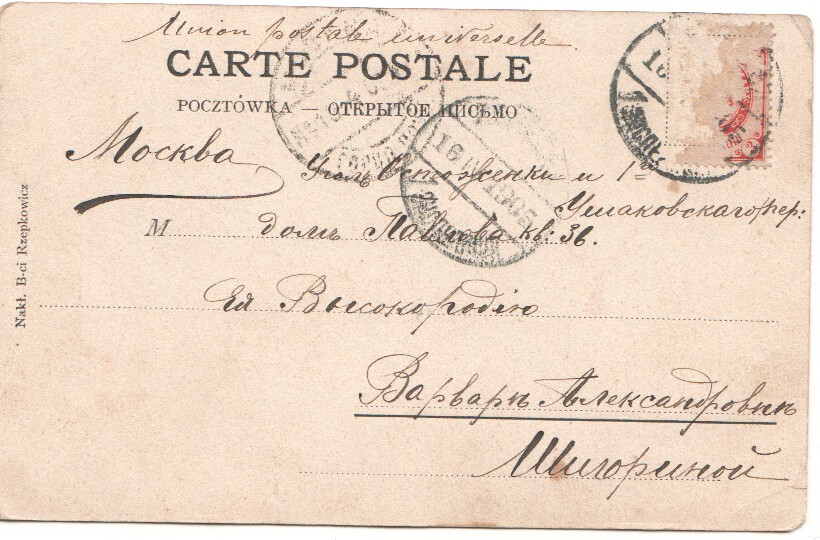 Union postale universelle
CARTE POSTALE
POCZTÓWKA — ОТКРЫТОЕ ПИСЬМО
Москва
Уголъ Остоженки и 1=
Ушаковскаго пер:
M домъ Павлова кв: 36.
Ея Высокородію
Варварѣ Александровнѣ
Шигориной
Nakł. B-ci Rzepkowicz
16 1905